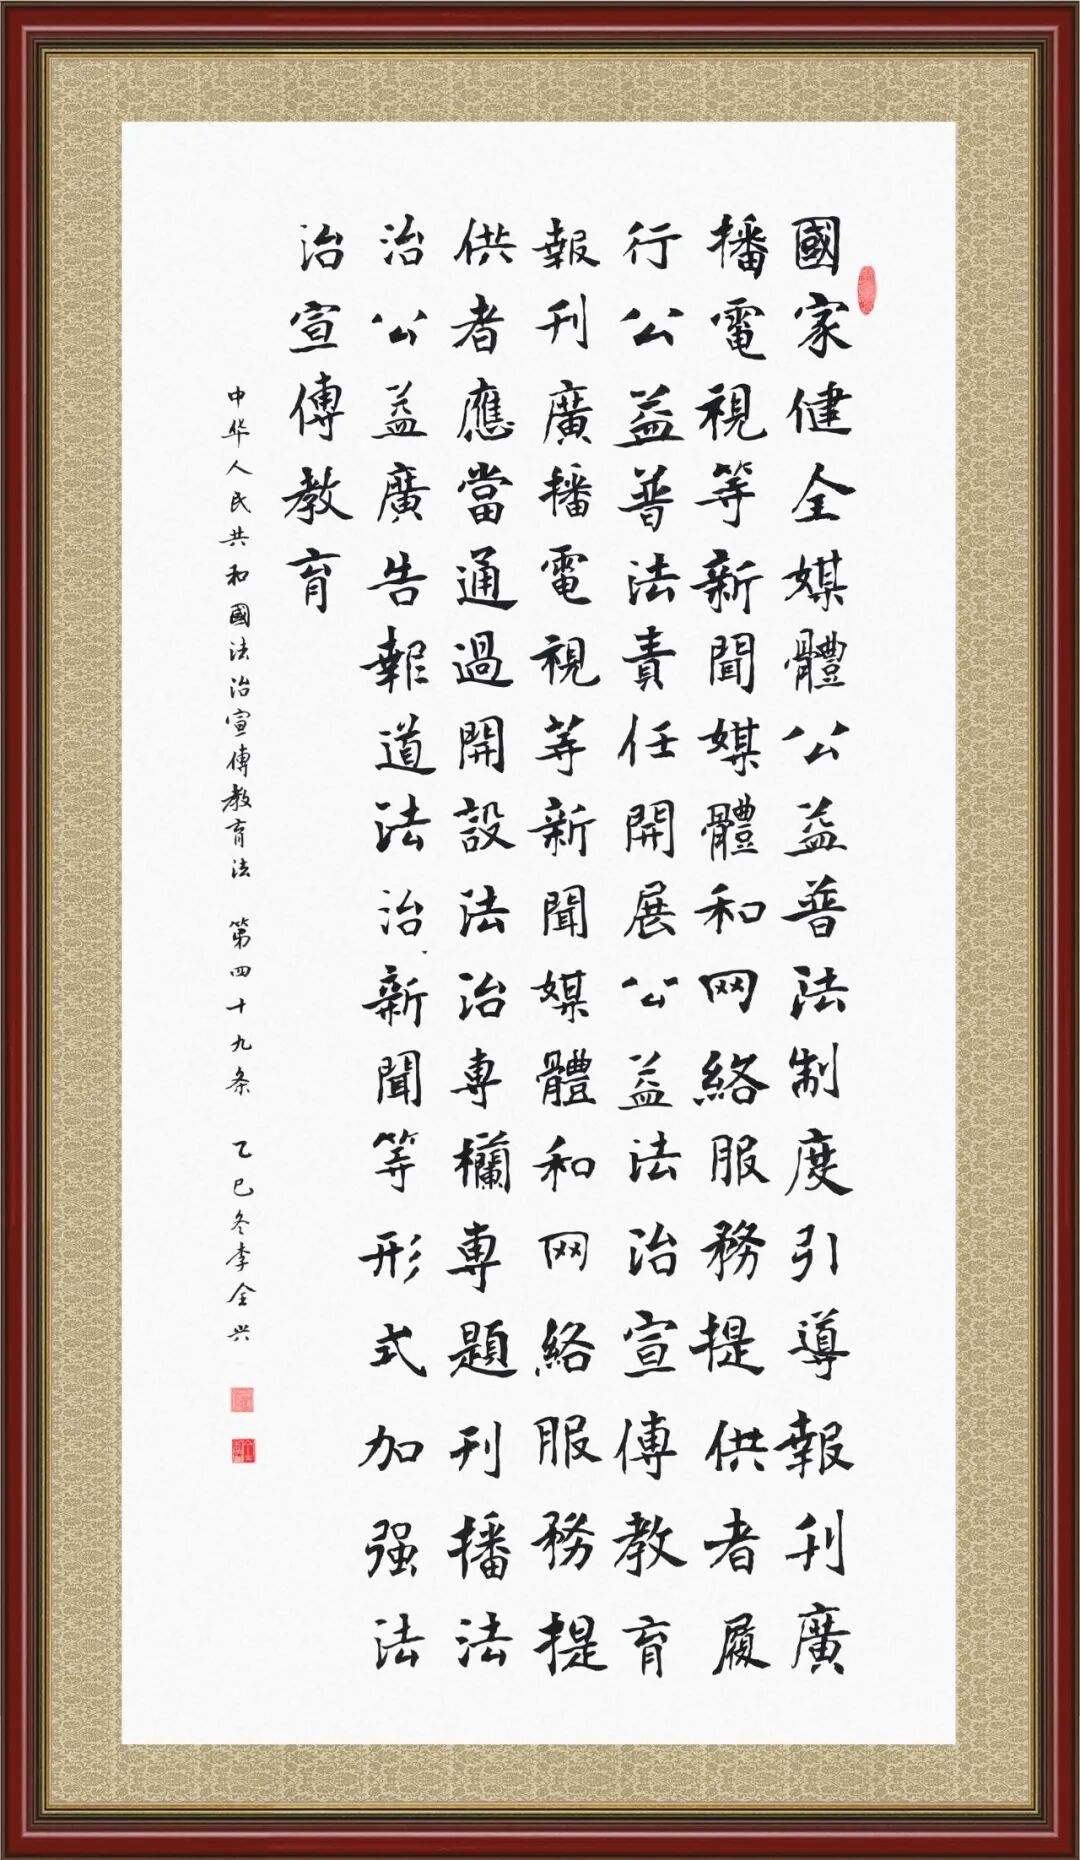 國家健全媒體公益普法制度引導報刊廣
播電視等新聞媒體和网絡服務提供者履
行公益普法責任開展公益法治宣傳教育
報刊廣播電視等新聞媒體和网絡服務提
供者應當通過開設法治專欄專題刊播法
治公益廣告報道法治新聞等形式加强法
治宣傳教育
中华人民共和國法治宣傳教育法 第四十九条 乙巳冬李全兴